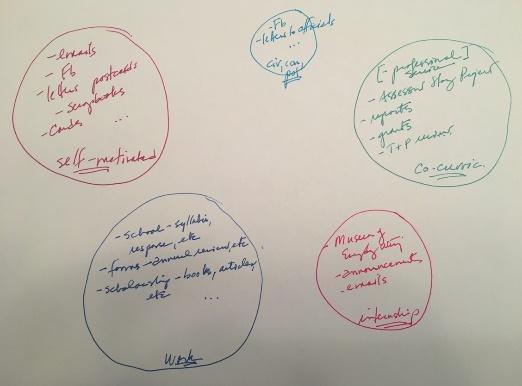 - emails
- Fb
- letters postcards
- scrapbooks
- Cards ...
self-motivated
- Fb
- letters to officials
...
civ, com,
pol
[- professional]
service
- Assessor Story Project
- reports
- grants
- T+P review
Co-curric.
- school - syllabi,
response, etc
- forms - annual review, etc
- scholarship - books, articles,
etc ...
Work
- Museum of
- announcements
- emails
internship